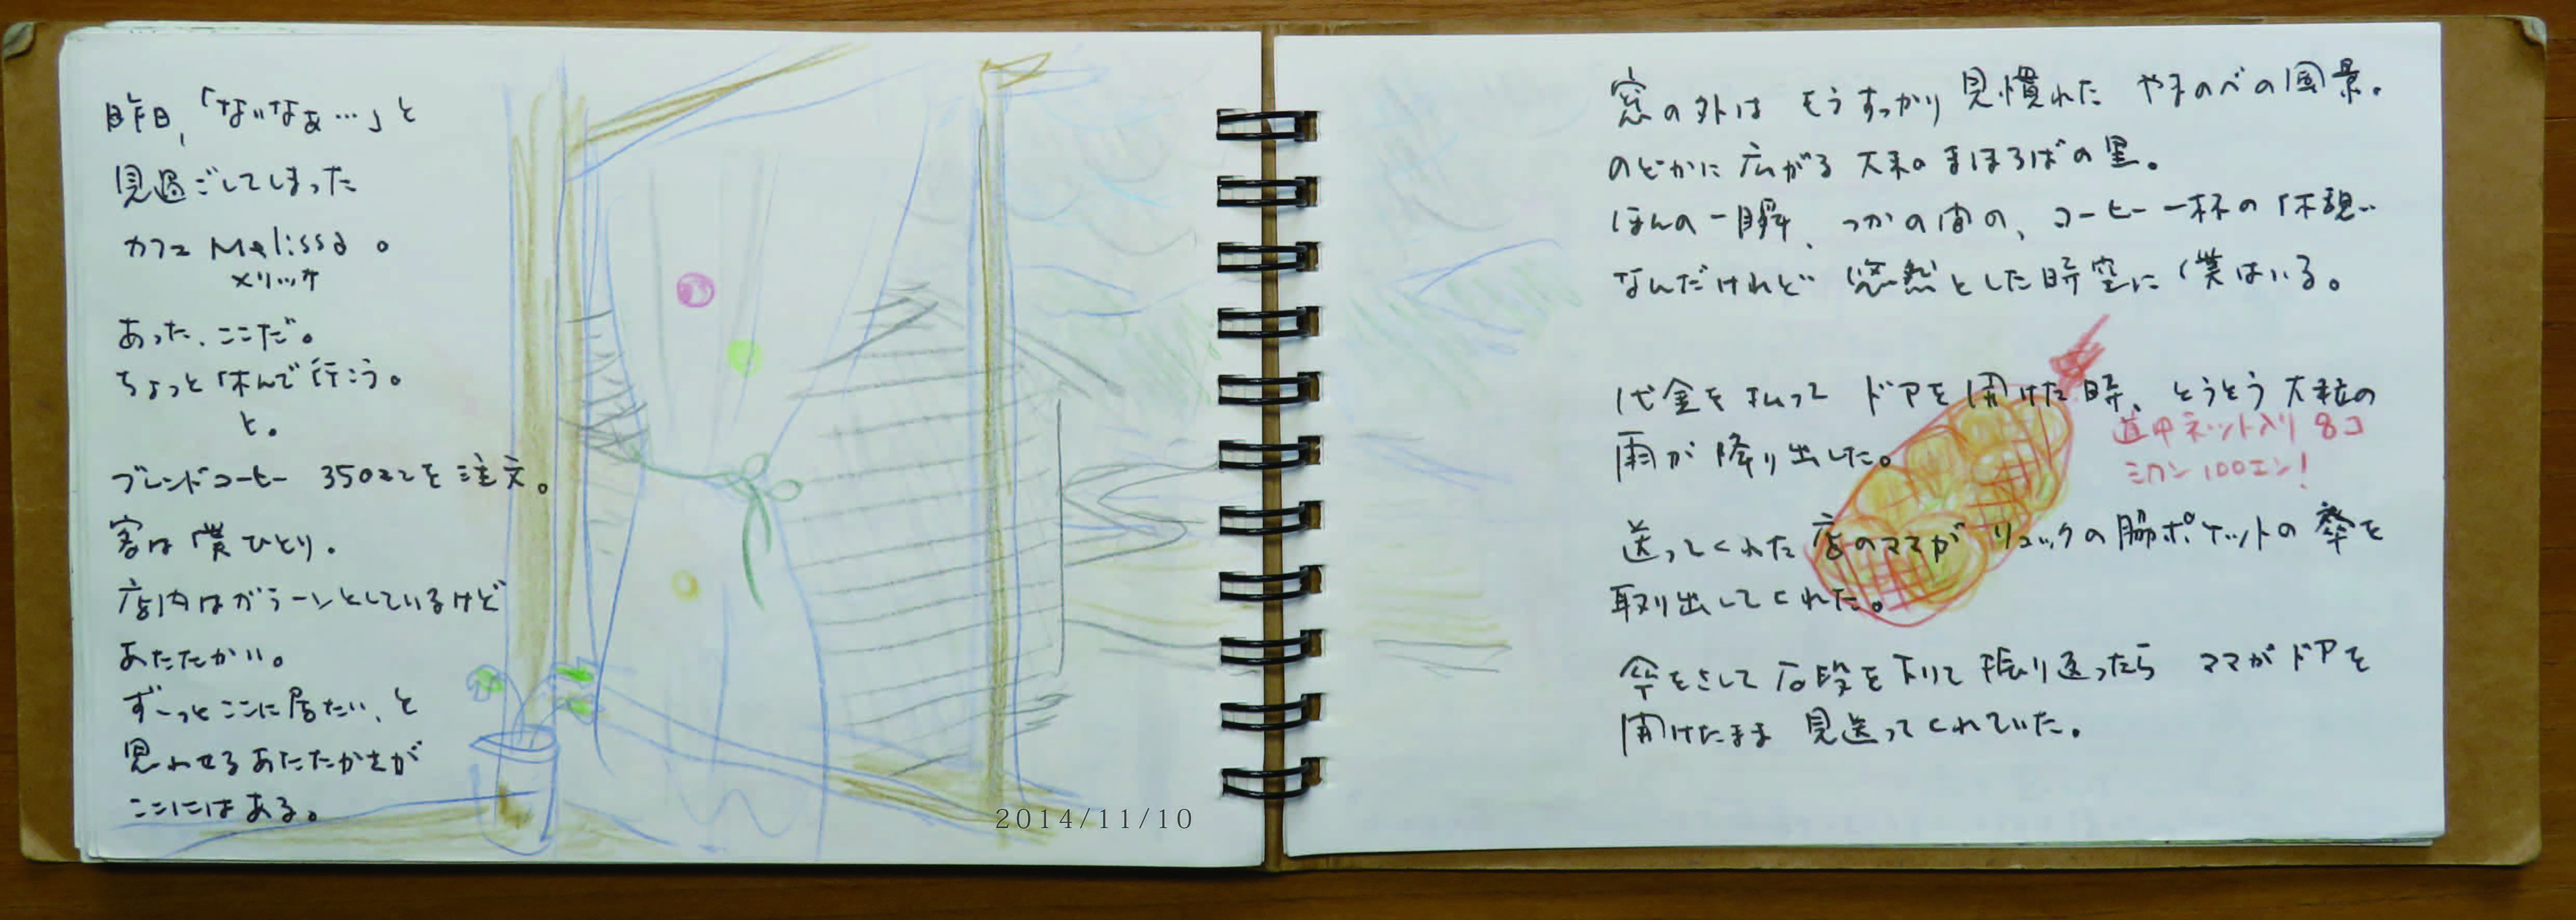 昨日,「ないなぁ…」と
見過ごしてしまった
カフェ Melissa 。
メリッサ
あった、ここだ。
ちょっと休んで行こう。
と。
ブレンドコーヒー 350エンを注文。
客は僕ひとり。
店内はガラーンとしているけど
あたたかい。
ずーっとここに居たい、と
思わせるあたたかさが
ここにはある。
2014/11/10
窓の外は もうすっかり見慣れた やまのべの風景。
のどかに広がる 大和のまほろばの里。
ほんの一瞬、つかの間の、コーヒー一杯の休憩…
なんだけれど 悠然とした時空に僕はいる。
代金を払って ドアを開けた時、とうとう大粒の
雨が降り出した。
道中ネット入り 8コ
ミカン100エン!
送ってくれた店のママが リュックの脇ポケットの傘を
取り出してくれた。
傘をさして石段を下りて振り返ったら ママがドアを
開けたまま 見送ってくれていた。